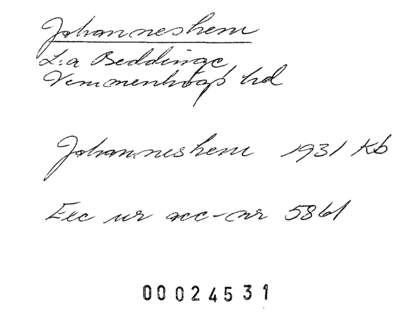 Johanneshem
L:a Beddinge,
Vemmenhögs hd
Johanneshem 1931 Kb
Exc ur acc-nr 5861
00024531